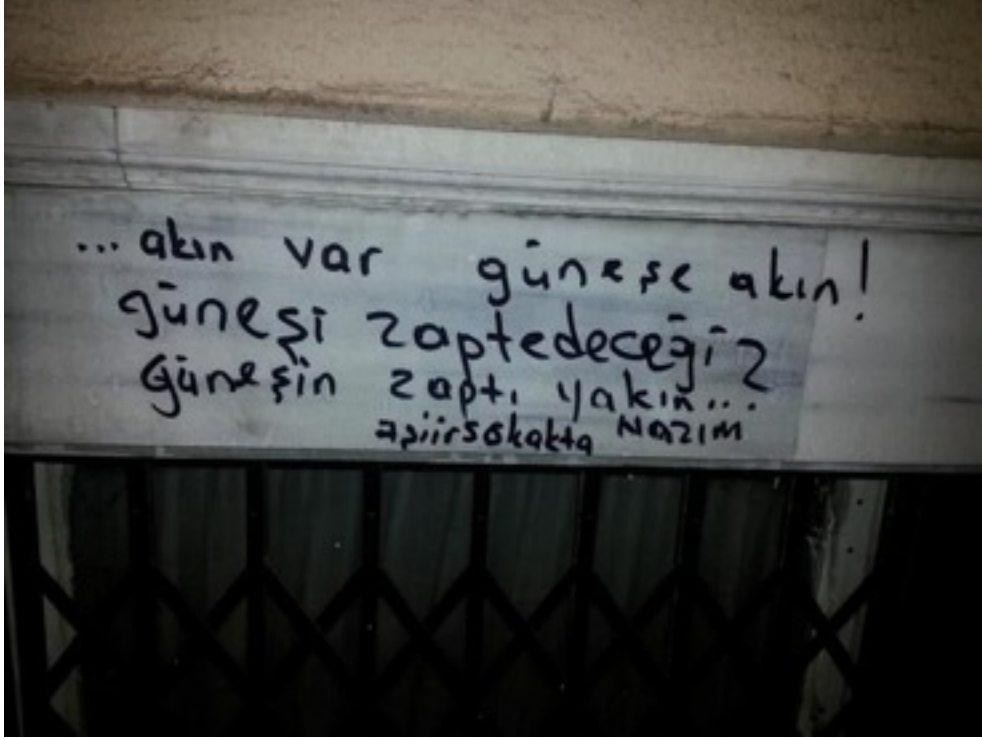 ... akın var güneşe akın!
güneşi zaptedeceğiz
Güneşin zaptı yakın...
#şiirsokakta Nazım